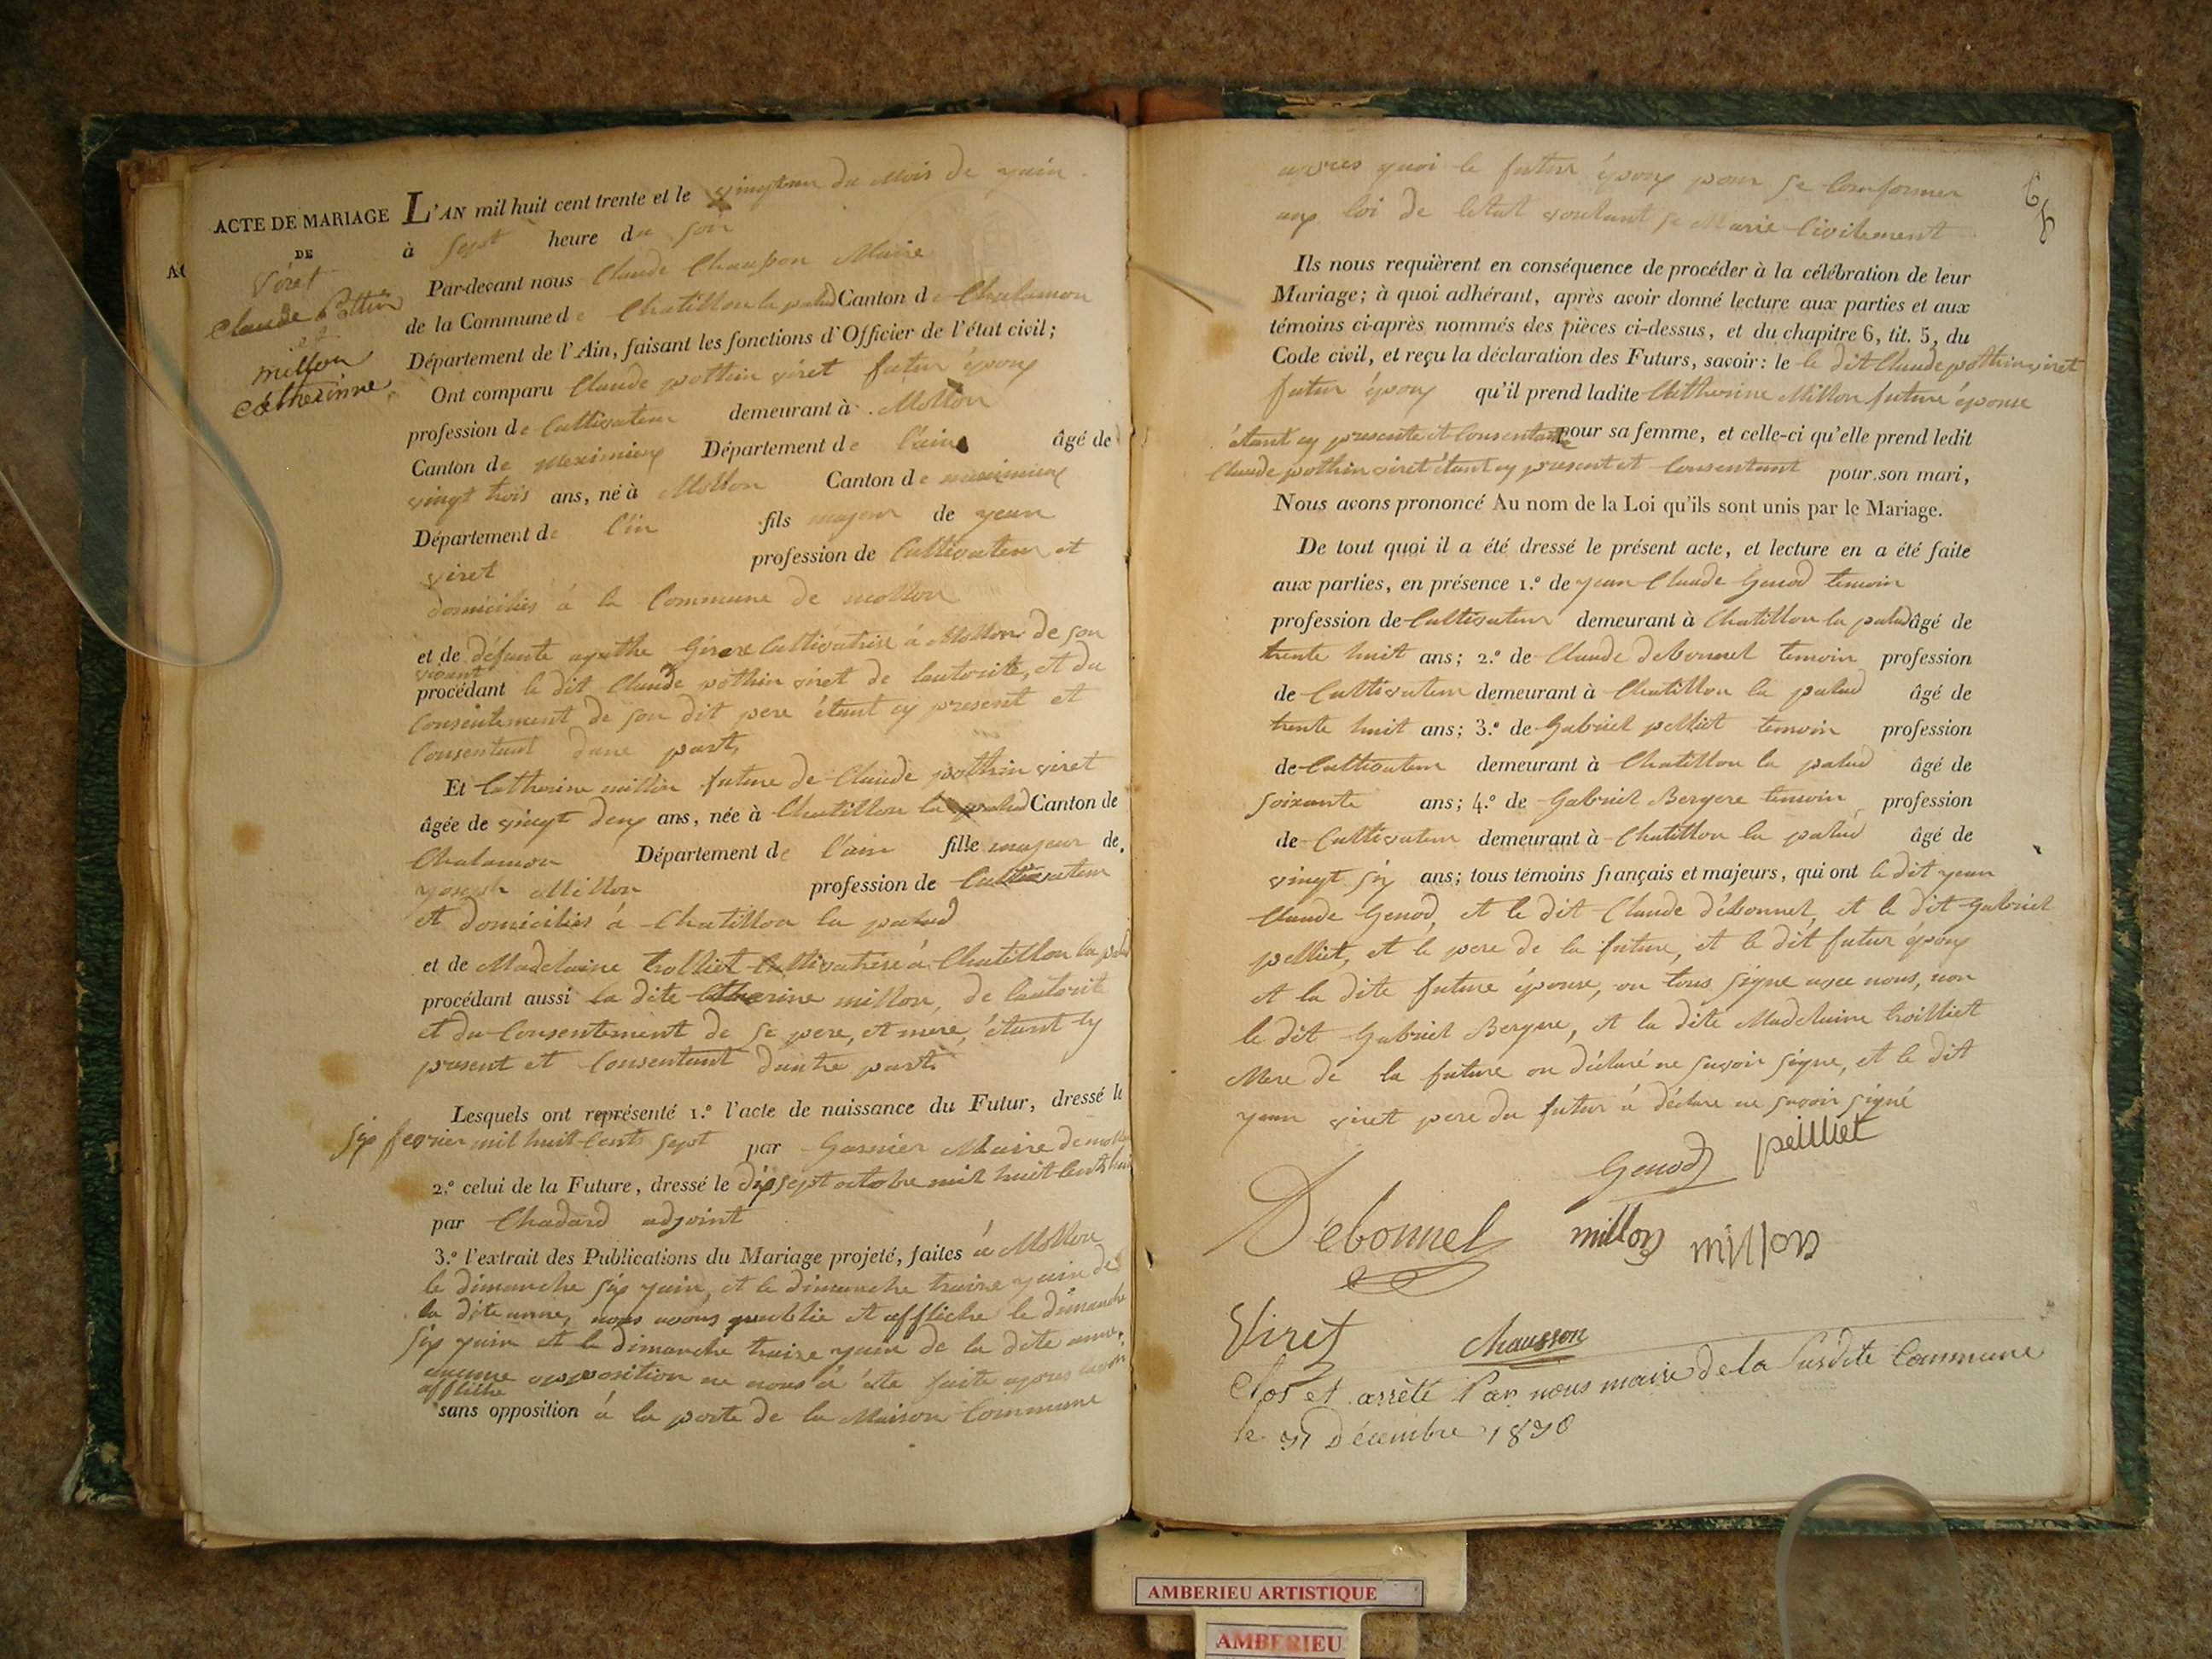 ACTE DE MARIAGE
DE
Viret
Claude Pottin
et
millon
Catherinne
L'AN mil huit cent trente et le vingt un du Mois de juin
à Sept heure du Soir
Par-devant nous Claude Chausson Maire
de la Commune de Chatillon la palud Canton de Chalamon
Département de l'Ain, faisant les fonctions d'Officier de l'état civil;
Ont comparu Claude pothin viret futur époux
profession de Cultivateur demeurant à Mollon
Canton de meximieux Département de l'ain âgé de
vingt trois ans, né à Mollon Canton de meximieux
Département de l'in fils majeur de jean
viret profession de Cultivateur et
domiciliés à la Commune de mollon
et de défunte agathe Cultivatrise à Mollon de son
vivant
procédant le dit Claude pothin viret de lautorité, et du
Consentement de son dit pere étant cy present et
Consentant dune part,
Et Catherine millon future de Claude pothin viret
âgée de vingt deux ans, née à Chatillon la palud Canton de
Chalamon Département de l'ain fille majeur de
joseph Millon profession de Cultivateur
et domiciliés à Chatillon la palud
et de Madelaine trolliet Cultivatrise à Chatillon la palud
procédant aussi la dite Catherine millon, de lautorité
et du Consentement de se pere, et mere, étant cy
present et Consentant dautre part
Lesquels ont représenté 1.º l'acte de naissance du Futur, dressé le
six fevrier mil huit Cents sept par Garnier Maire de mollon
2.º celui de la Future, dressé le dix sept octobre mil huit Cents huit
par Chadard adjoint
3.º l'extrait des Publications du Mariage projeté, faites à Mollon
le dimanche six juin, et le dimanche traize juin de
la dite anne, nous avons publié et affliche le dimanche
six juin et le dimanche traize juin de la dite anne,
aucune opposition ne nous a été faite apres lavoir
affliché
sans opposition à la porte de la Maison Commune
apres quoi le futur époux pour se Conformer
aux loi de letat voulant se Marié Civilement
Ils nous requièrent en conséquence de procéder à la célébration de leur
Mariage; à quoi adhérant, après avoir donné lecture aux parties et aux
témoins ci-après nommés des pièces ci-dessus, et du chapitre 6, tit. 5, du
Code civil, et reçu la déclaration des Futurs, savoir: le le dit Claude pothin viret
futur époux qu'il prend ladite Catherine Millon future épouse
étant cy presente et Consentante pour sa femme, et celle-ci qu'elle prend ledit
Claude pothin viret étant cy present et Consentant pour son mari,
Nous avons prononcé Au nom de la Loi qu'ils sont unis par le Mariage.
De tout quoi il a été dressé le présent acte, et lecture en a été faite
aux parties, en présence 1.º de jean Claude Genod temoin
profession de Cultivateur demeurant à Chatillon la palud âgé de
trente huit ans; 2.º de Claude debonnel temoin profession
de Cultivateur demeurant à Chatillon la palud âgé de
trente huit ans; 3.º de Gabriel pelliet temoin profession
de Cultivateur demeurant à Chatillon la palud âgé de
soixante ans; 4.º de Gabriel Bergere temoin profession
de Cultivateur demeurant à Chatillon la palud âgé de
vingt six ans; tous témoins français et majeurs, qui ont le dit jean
Claude Genod, et le dit Claude débonnel, et le dit Gabriel
pelliet, et le pere de la future, et le dit futur époux
et la dite future épouse, on tous signe avec nous, non
le dit Gabriel Bergere, et la dite Madelaine troilliet
Mere de la future on déclaré ne savoir signe, et le dit
jean viret pere du futur à déclare ne savoir signé
Genod peilliet
Debonnel millon millon
Viret chausson
Clos et arrêté Par nous maire de la susdite Commune
le 31 Décembre 1830
AMBERIEU ARTISTIQUE
AMBERIEU